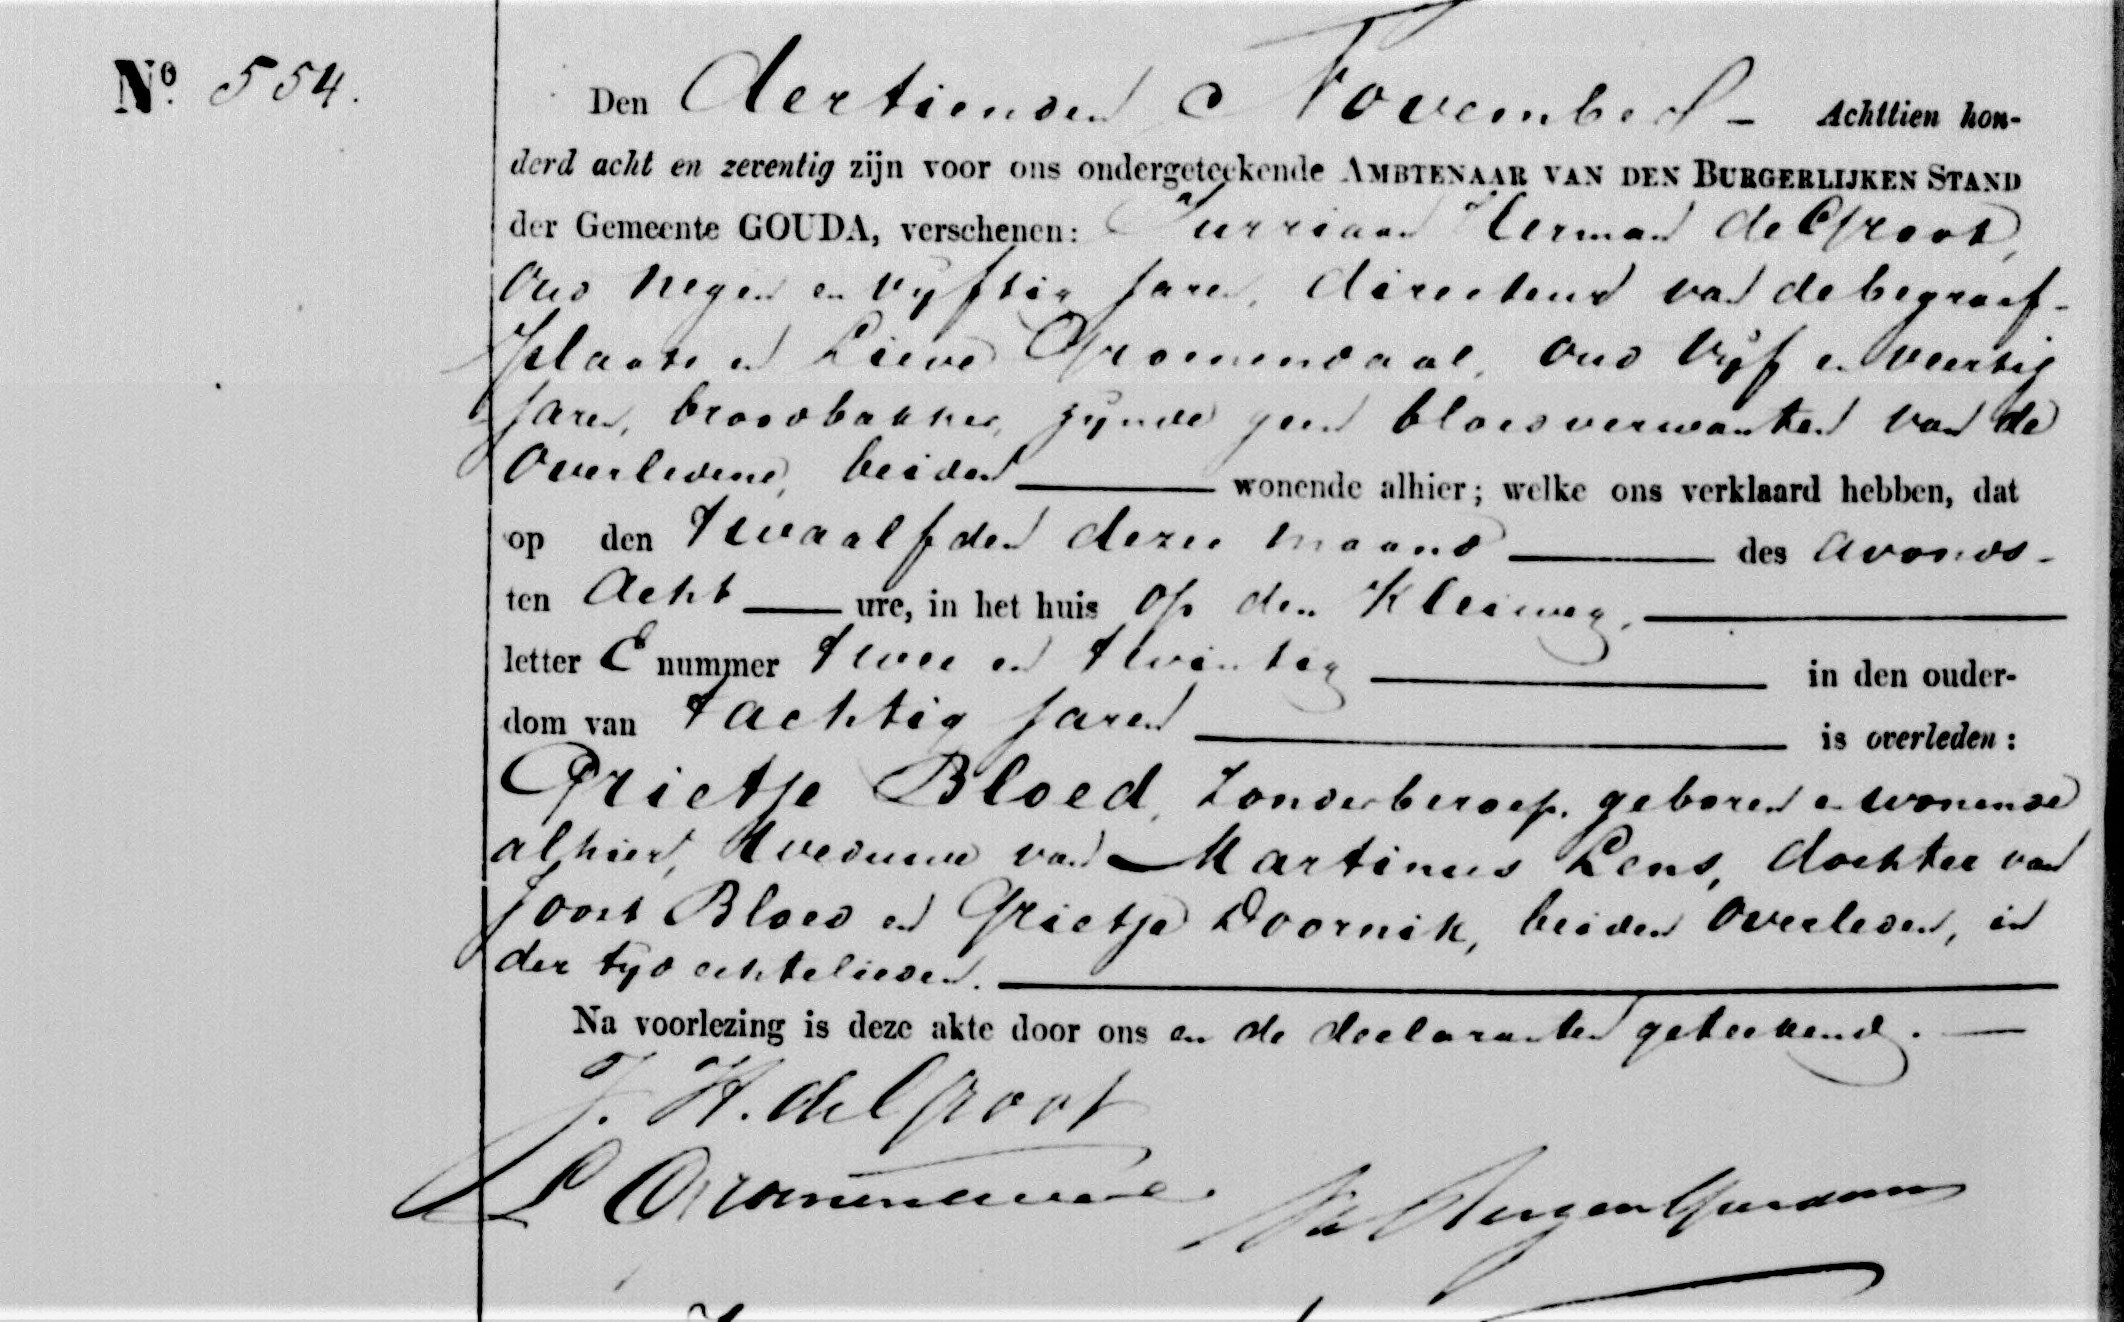 No. 554.
Den dertienden November - Achttien hon-
derd acht en zeventig zijn voor ons ondergeteekende AMBTENAAR VAN DEN BURGERLIJKEN STAND
der Gemeente GOUDA, verschenen: Jurriaan Herman de Groot,
oud negen en vijftig jaren, directeur van de begraaf-
plaats en Lieve Groenendaal, oud vijf en veertig
jaren, broodbakker, zijnde geen bloedverwanten van de
overledene, beiden wonende alhier; welke ons verklaard hebben, dat
op den twaalfden dezer maand des avonds
ten acht ure, in het huis op den Kleiweg,
letter E nummer twee en twintig in den ouder-
dom van tachtig jaren is overleden:
Grietje Bloed, zonder beroep, geboren en wonende
alhier, weduwe van Martinus Lens, dochter van
Joost Bloed en Grietje Doornik, beiden overleden, in
der tijd echtelieden.
Na voorlezing is deze akte door ons en de declaranten geteekend.
J. H. de Groot
L Groenendaal